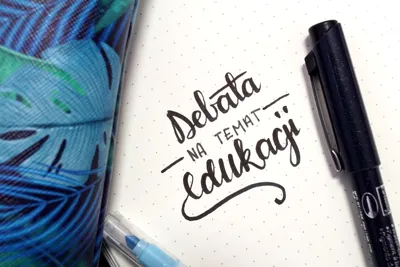 Debata
NA TEMAT
edukacji